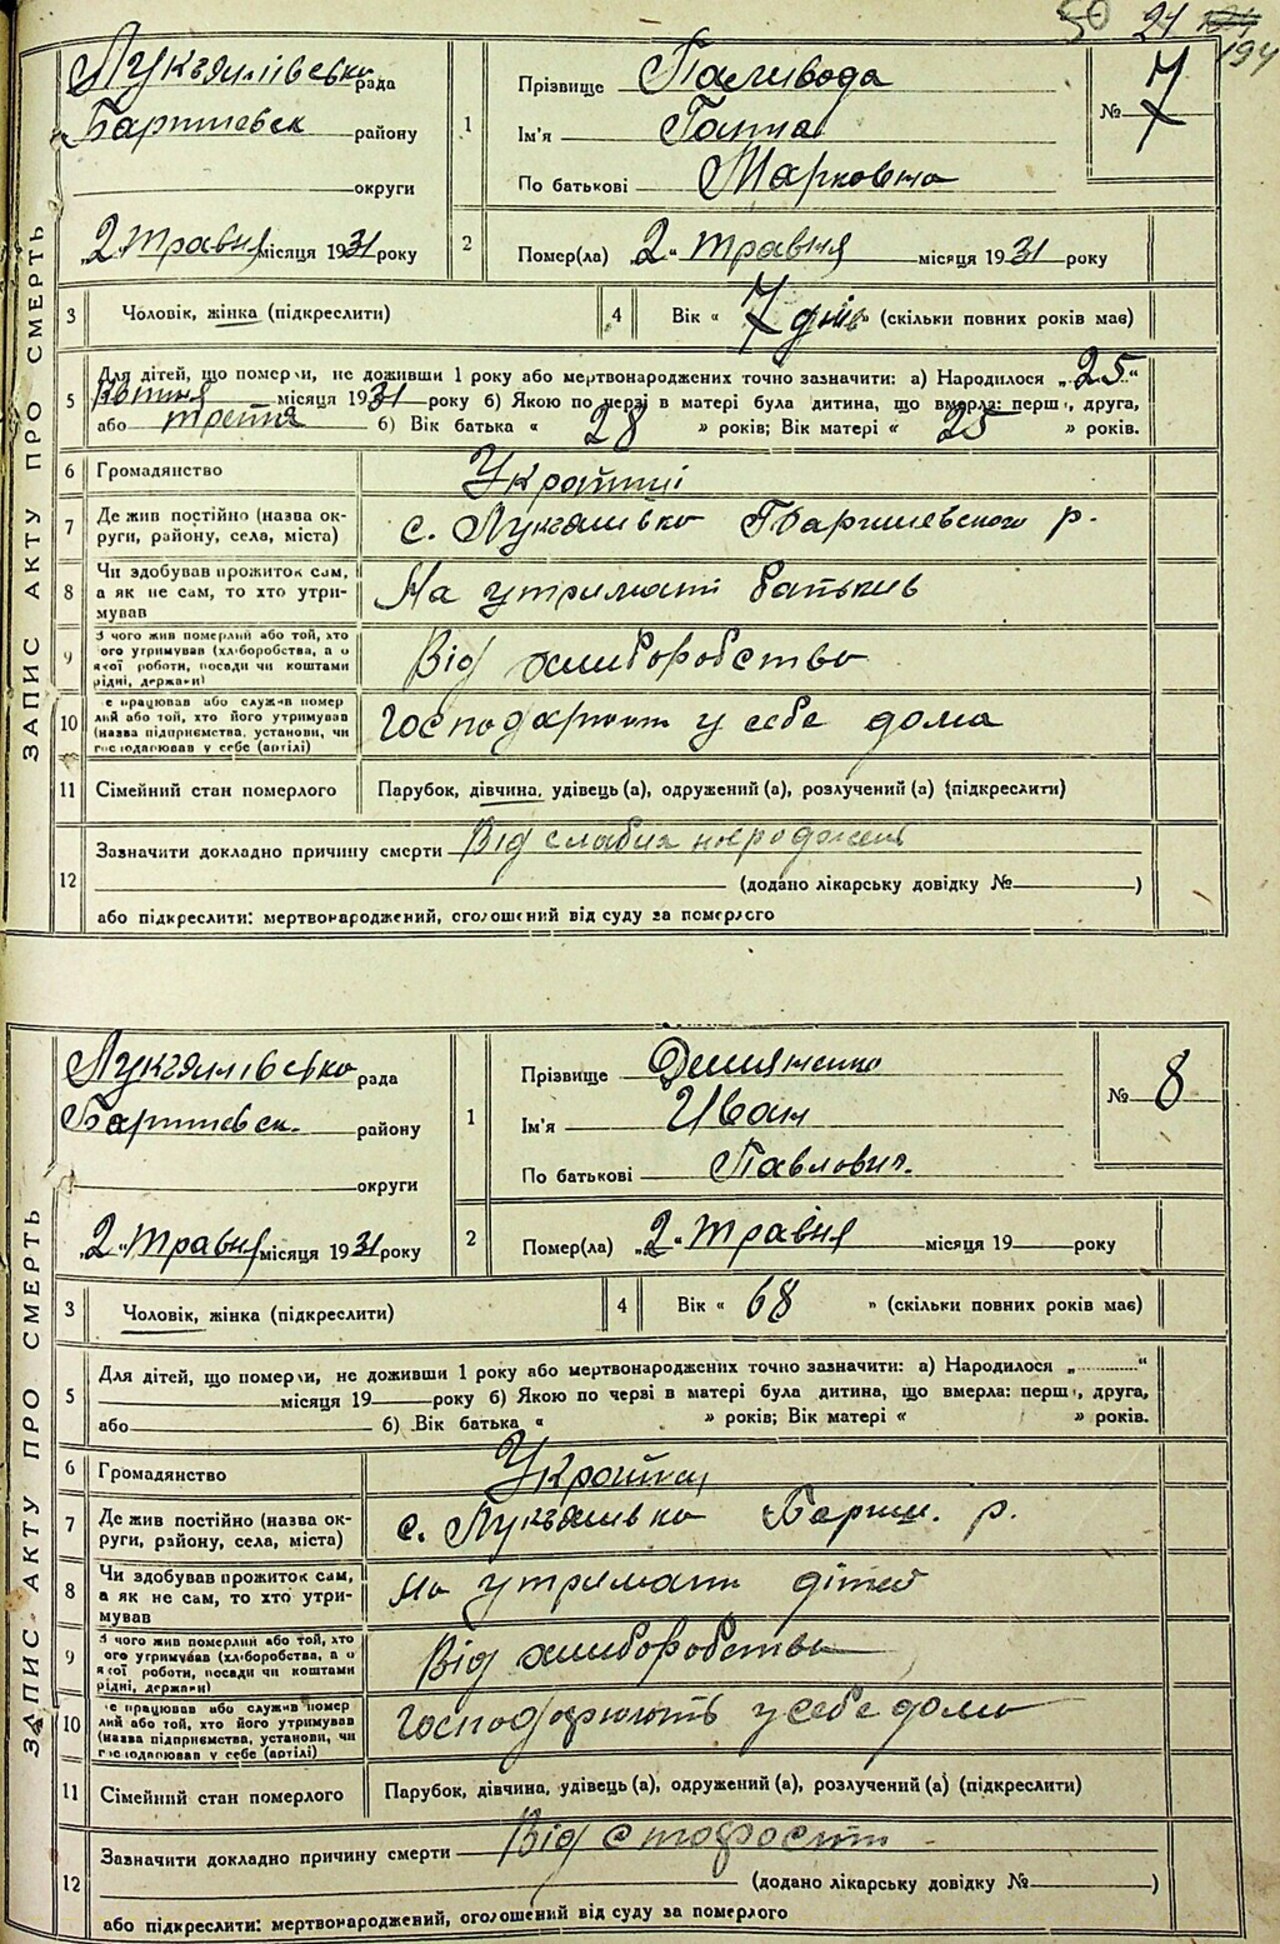 50 21
194
ЗАПИС АКТУ ПРО СМЕРТЬ
Лукъянівська рада
Баришевск району
округи
„2„ травня місяця 1931 року
1
Прізвище Паливода
Ім'я Ганна
По батькові Марковна
№ 7
2
Помер(ла) „2“ травня місяця 1931 року
3 Чоловік, жінка (підкреслити)
4 Вік « 7 днів » (скільки повних років має)
5 Для дітей, що померли, не доживши 1 року або мертвонароджених точно зазначити: а) Народилося „25“
квітня місяця 1931 року б) Якою по черзі в матері була дитина, що вмерла: перша, друга,
або третя б) Вік батька « 28 » років; Вік матері « 25 » років.
6 Громадянство Україниці
7 Де жив постійно (назва ок-
руги, району, села, міста) с. Лукъянивка Баришевского р.
8 Чи здобував прожиток сам,
а як не сам, то хто утри-
мував На утримані батьків
9 З чого жив померлий або той, хто
ого утримував (хліборобства, а о
якої роботи, посади чи коштами
рідні, держави) Від хлиборобства
10 е працював або служив помер
лий або той, хто його утримував
(назва підприємства, установи, чи
господарював у себе (артілі) Господарюют у себе дома
11 Сімейний стан померлого Парубок, дівчина, удівець (а), одружений (а), розлучений (а) (підкреслити)
12 Зазначити докладно причину смерти Від слабих народжень
(додано лікарську довідку № )
або підкреслити: мертвонароджений, оголошений від суду за померлого
ЗАПИС АКТУ ПРО СМЕРТЬ
Лукъянівська рада
Баришевск. району
округи
„2“ травня місяця 1931 року
1
Прізвище Демяненко
Ім'я Иван
По батькові Павлович.
№ 8
2
Помер(ла) „2“ травня місяця 19 року
3 Чоловік, жінка (підкреслити)
4 Вік « 68 » (скільки повних років має)
5 Для дітей, що померли, не доживши 1 року або мертвонароджених точно зазначити: а) Народилося „ “
місяця 19 року б) Якою по черзі в матері була дитина, що вмерла: перша, друга,
або б) Вік батька « » років; Вік матері « » років.
6 Громадянство Украинец
7 Де жив постійно (назва ок-
руги, району, села, міста) с. Лукъянивка Бариш. р.
8 Чи здобував прожиток сам,
а як не сам, то хто утри-
мував На утримані дітей
9 З чого жив померлий або той, хто
ого утримував (хліборобства, а о
якої роботи, посади чи коштами
рідні, держави) Від хлиборобства
10 е працював або служив помер
лий або той, хто його утримував
(назва підприємства, установи, чи
господарював у себе (артілі) Господарюють у себе дома
11 Сімейний стан померлого Парубок, дівчина, удівець (а), одружений (а), розлучений (а) (підкреслити)
12 Зазначити докладно причину смерти Від старости
(додано лікарську довідку № )
або підкреслити: мертвонароджений, оголошений від суду за померлого